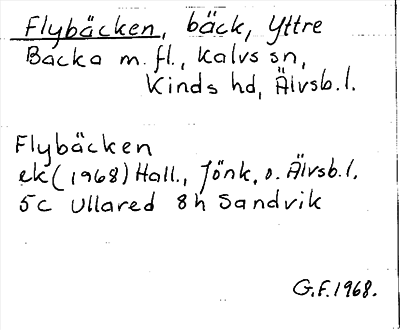 Flybäcken, bäck, Yttre
Backa m. fl., Kalvs sn,
Kinds hd, Älvsb. l.
Flybäcken
ek (1968) Hall., Jönk. o. Älvsb. l.
5c Ullared 8h Sandvik
G.F. 1968.